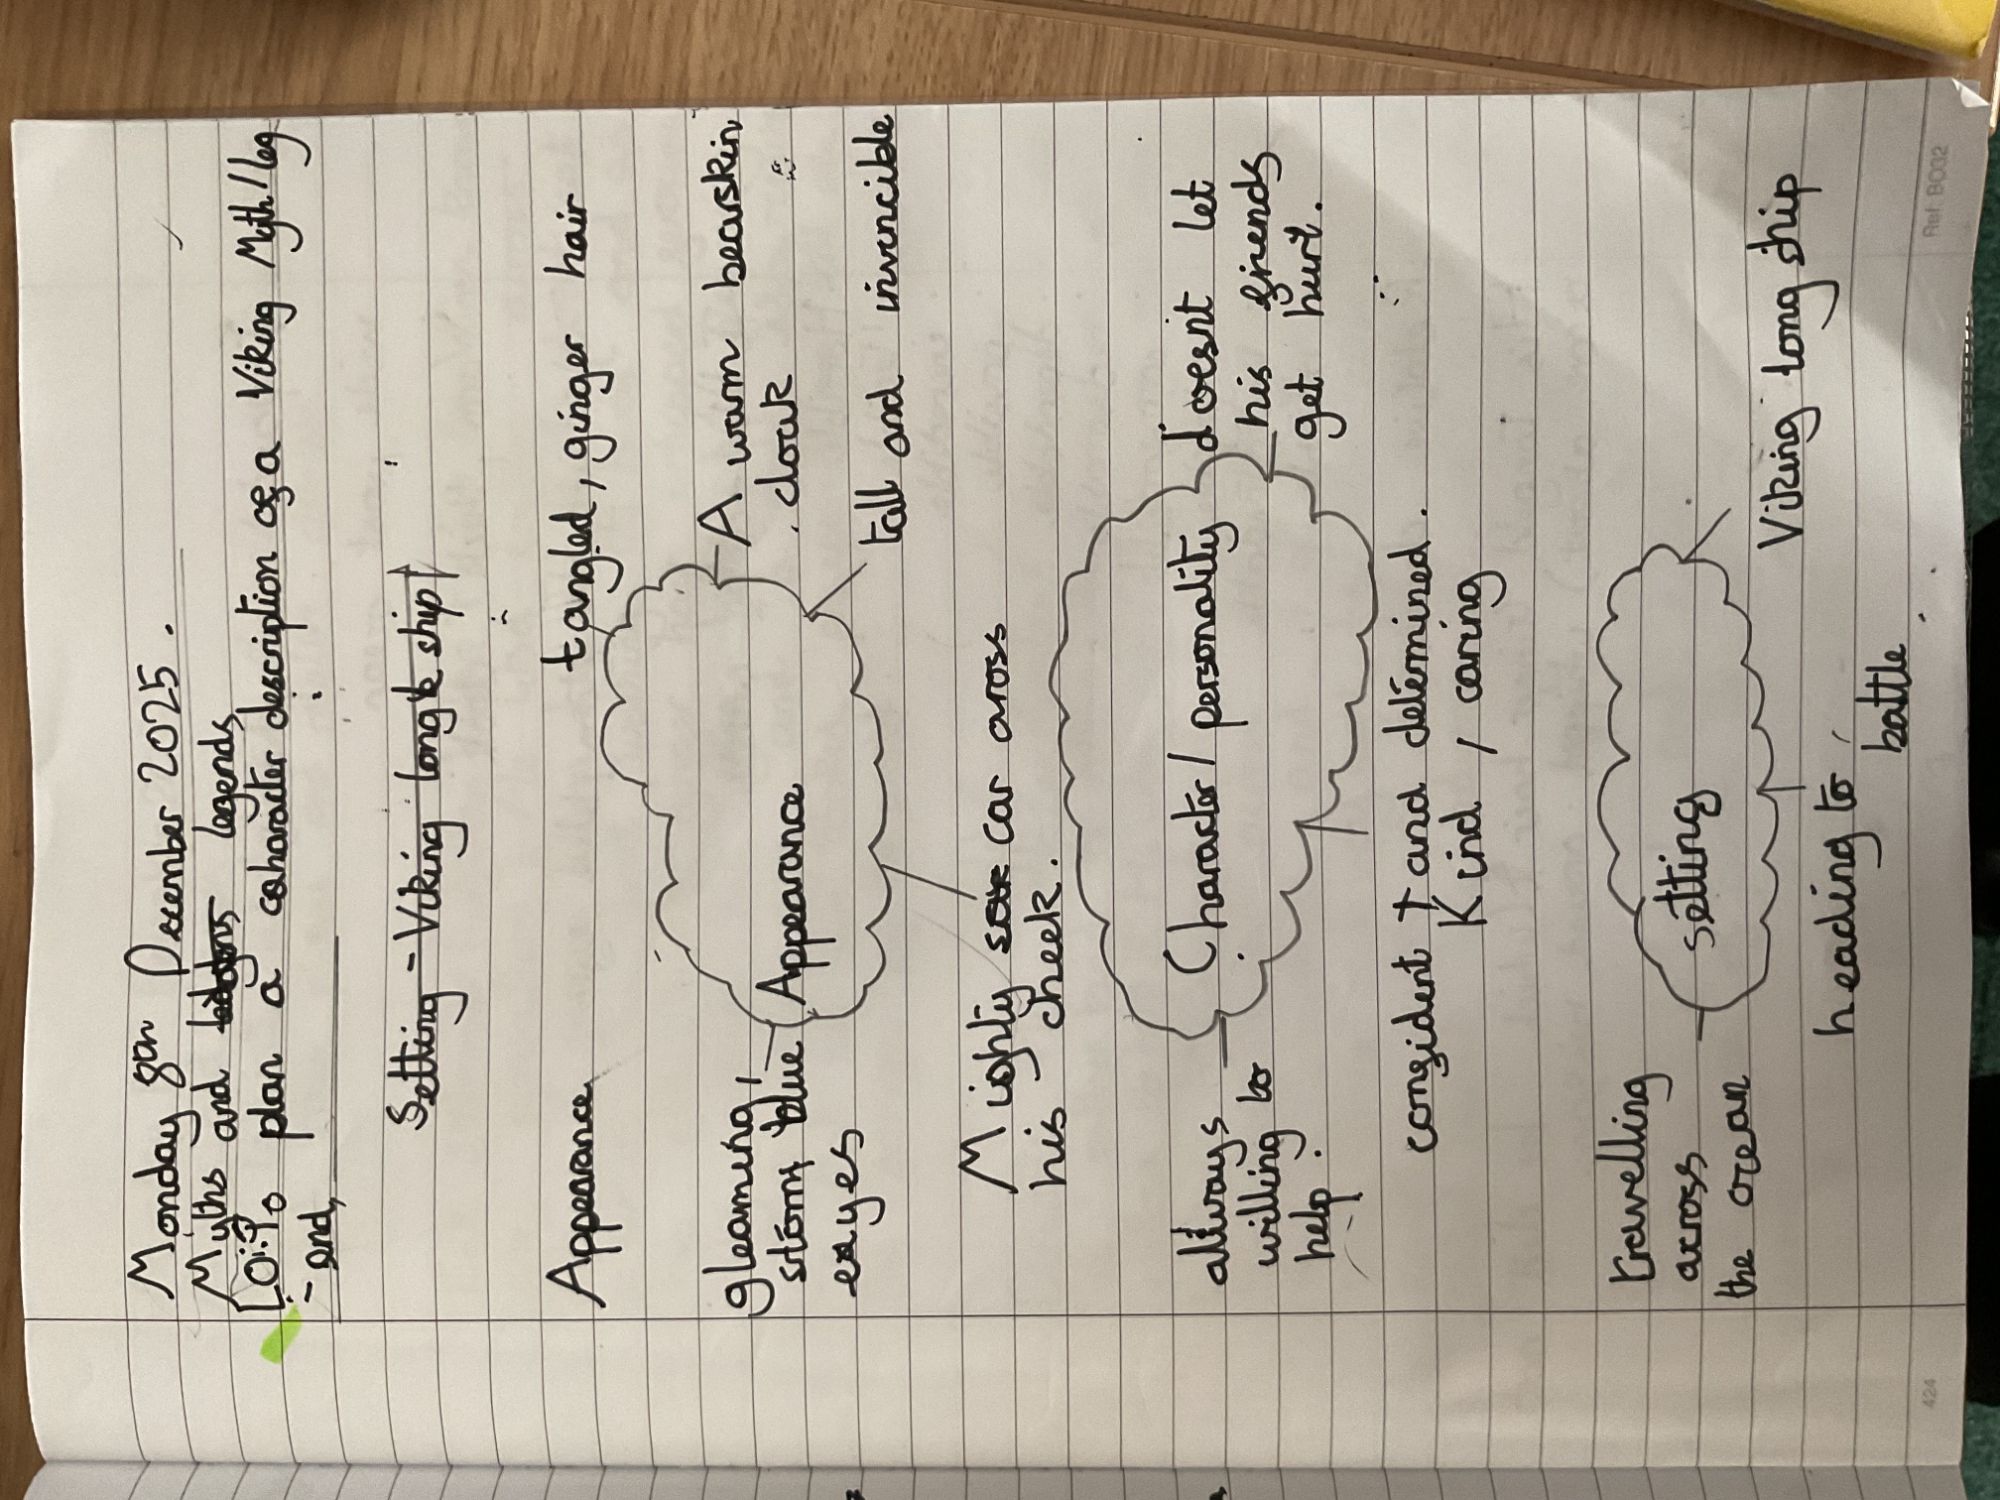 Monday 8th December 2025.
Myths and legends
LO: To plan a caharacter description of a Viking Myth/leg
-end,
Setting - Viking long ship
Appearance
tangled, ginger hair
A warm bearskin
cloak
tall and invincible
gleaming,
stormy blue
eayes
Appearance
Mighty scar car aross
his cheek.
Character/personality
doesn't let
his friends
get hurt.
always
willing to
help.
confident and determined.
Kind / caring
Setting
travelling
across
the ocean
heading to
battle
Viking long ship
424
Ref: BO32